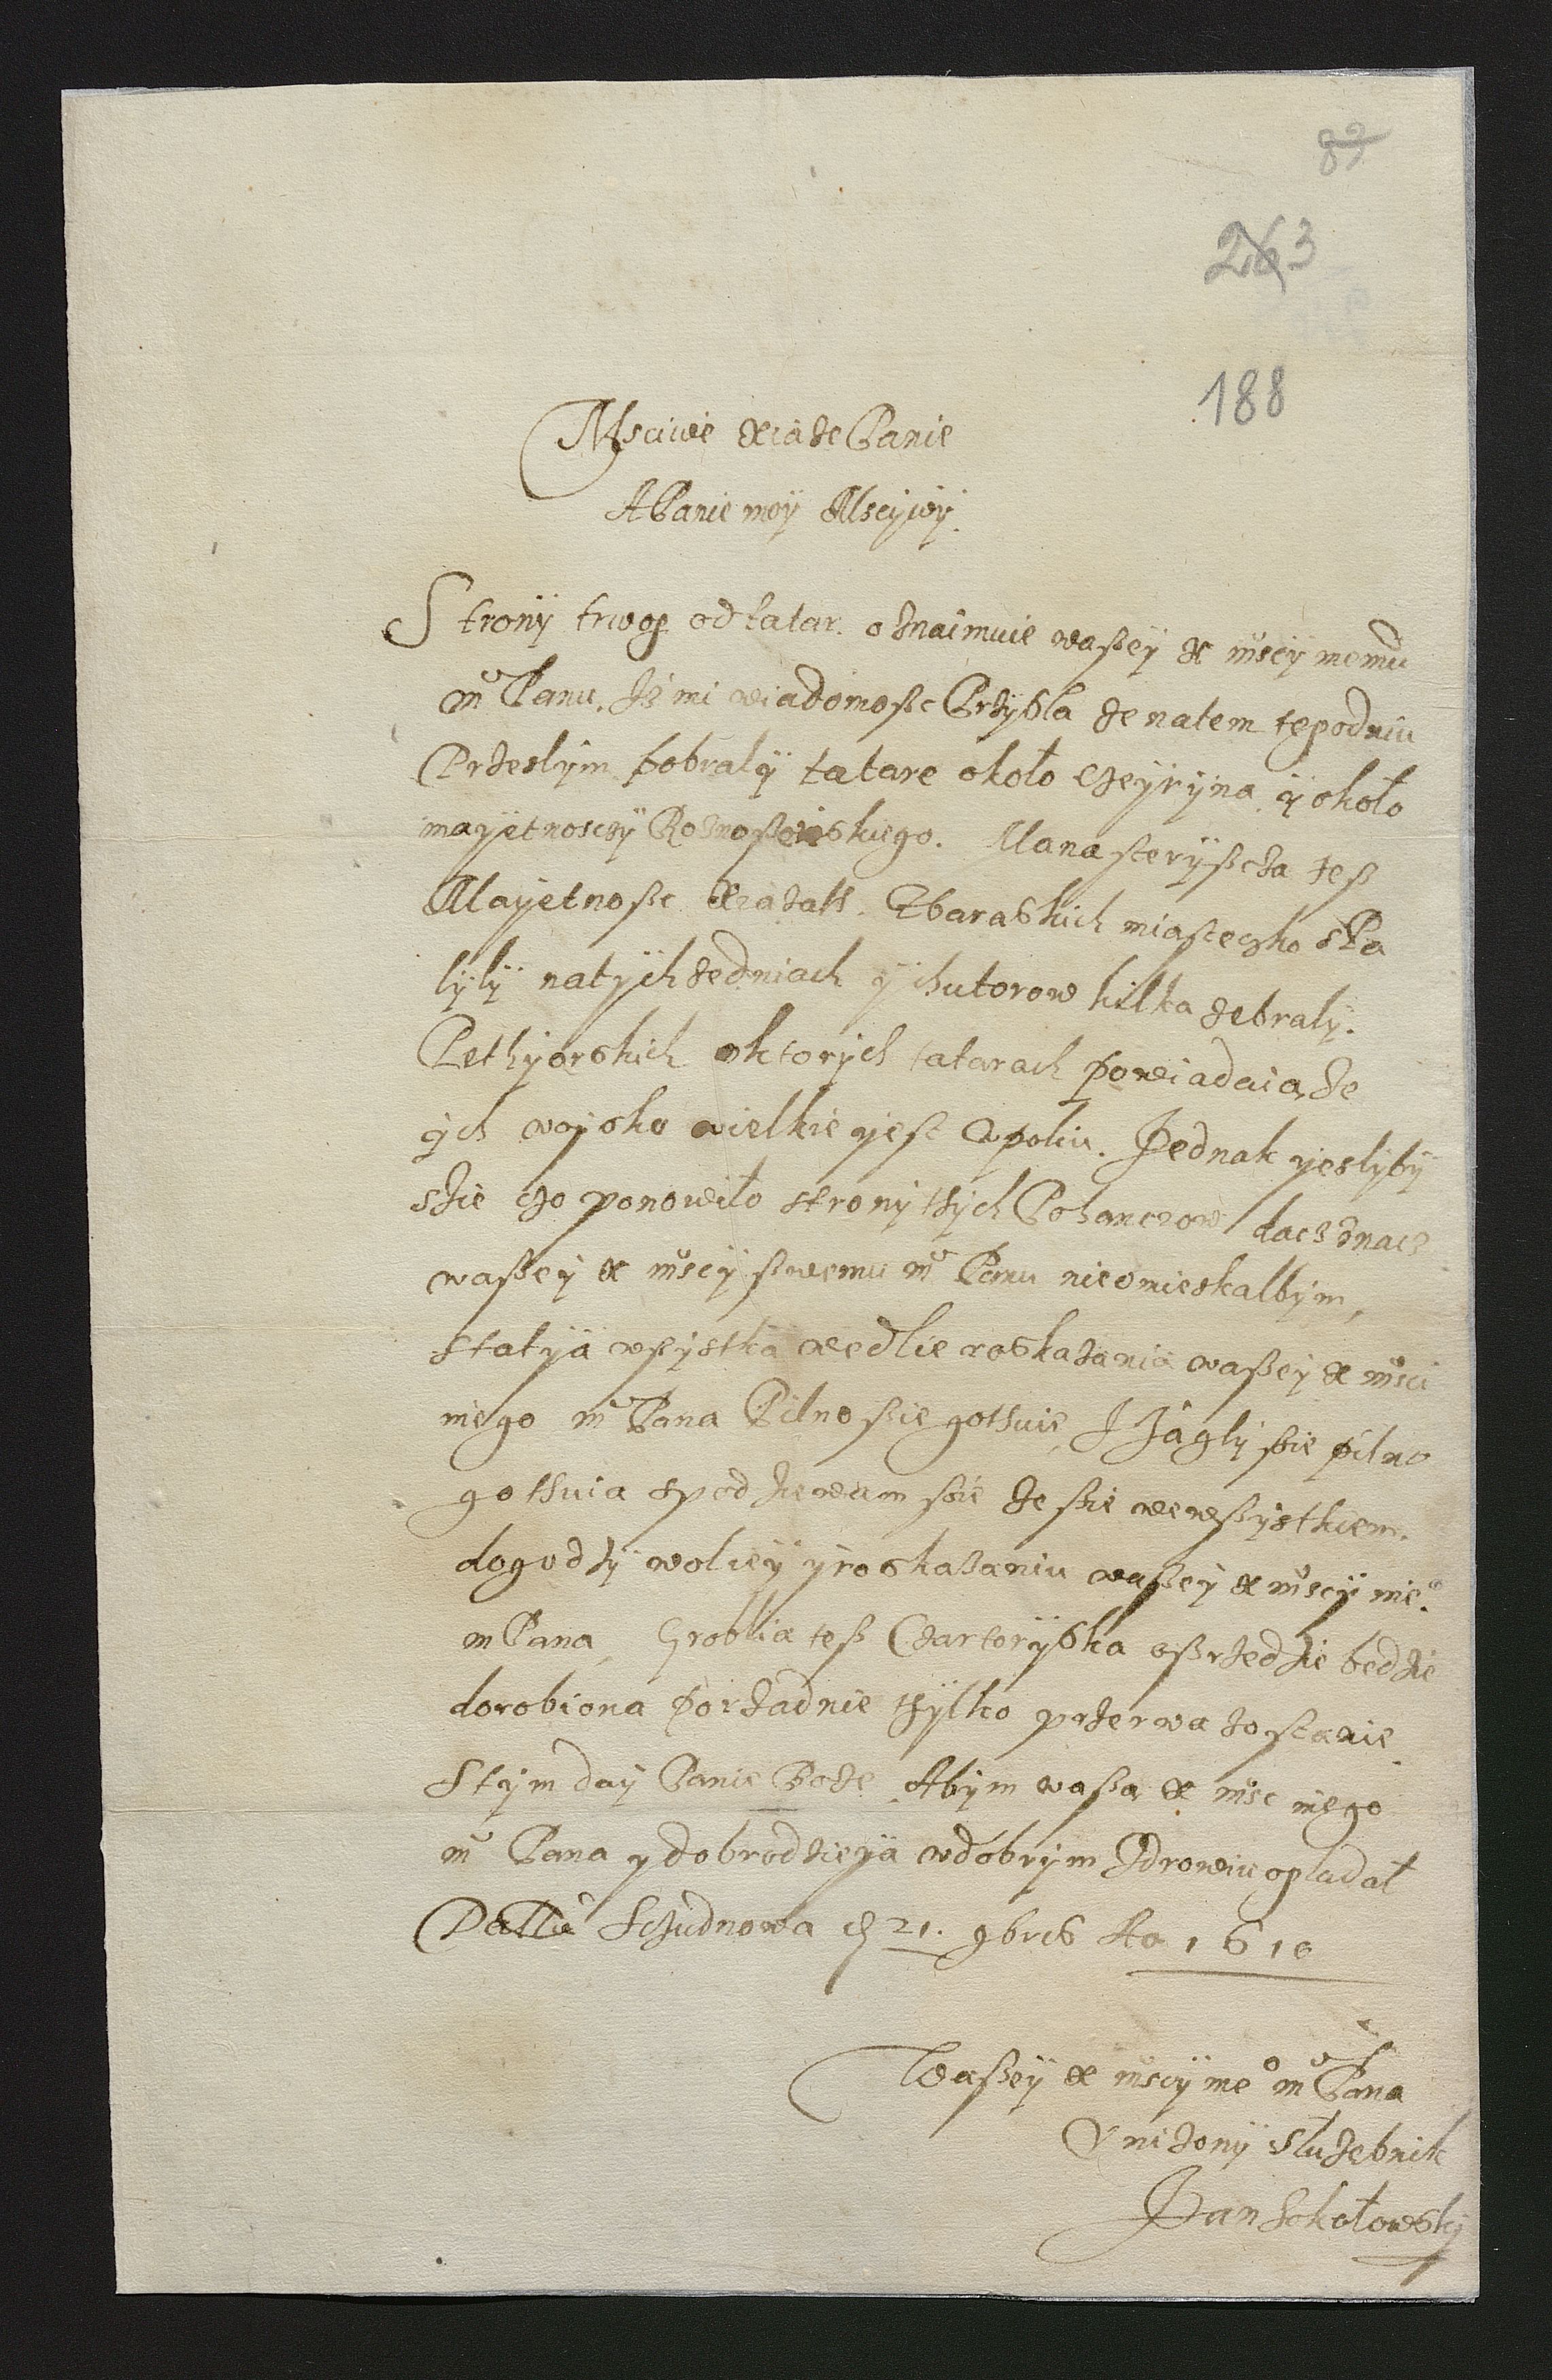 83
263
188
Msciwe xiąże Panie
A Panie moÿ Mscÿwÿ.
Stronÿ trwog od tatar. oznaimuie waßeÿ x mscÿ memu
m Panu, Iż mi wiadomoßc Przÿßla że natem tẏpodniu
Przeslÿm pobralÿ tatare około Czeÿrÿna ÿ około
mayetnosczÿ Roznoßeńskiego. Manasterÿßcza teß
Mayetnoßc xiążątt. Zbaraskich miasteczko sPa
lÿlÿ natÿch dedniach ÿ chutorow kilka zebralÿ.
Pethÿorskich oktorÿch tatarach powiadaią że
ÿch woÿsko wielkie ÿest w poliu. Jednak ÿeslÿbÿ
szie czo ponowiło stronÿ thÿch Pohanczow dacz znacz
waßeÿ x mscÿ ßwemu m Panu nieomieskalbÿm,
statÿą wßÿstką wedlie roskazania waßeÿ x msci
mego m Pana Pilno ßie gothuie, I żagłÿ ßie pilno
gothuia spodziewam ßie że ßie wewßÿstkiem.
dogodzÿ wolieÿ ÿ roskazaniu waßeÿ x mscÿ me.
m Pana, Groblia teß Czartorÿska oßrzedzie bedzie
dorobiona porzadnie thÿlko przerwa zostanie
Stÿm daÿ Panie Boże Abÿm waßą x msc mego
m Pana y dobrodzieÿa wdobrÿm zdrowiu oglądał
Datte SCzudnowa d 21. 9bris Ao 1610
Waßeÿ x mscÿ me m Pana
Vniżonÿ służebnik
Jan Sokołowskÿ